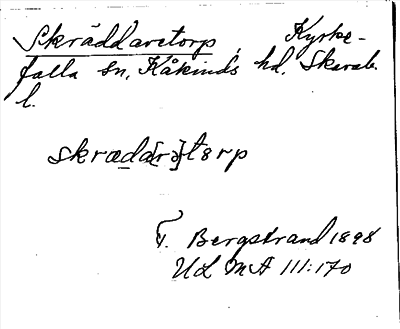 Skräddaretorp, Kyrke-
falla sn, Kåkinds hd. Skarab.
l.
skrædα[rə]tɜrp
T. Bergstrand 1898
ULMA 111:170